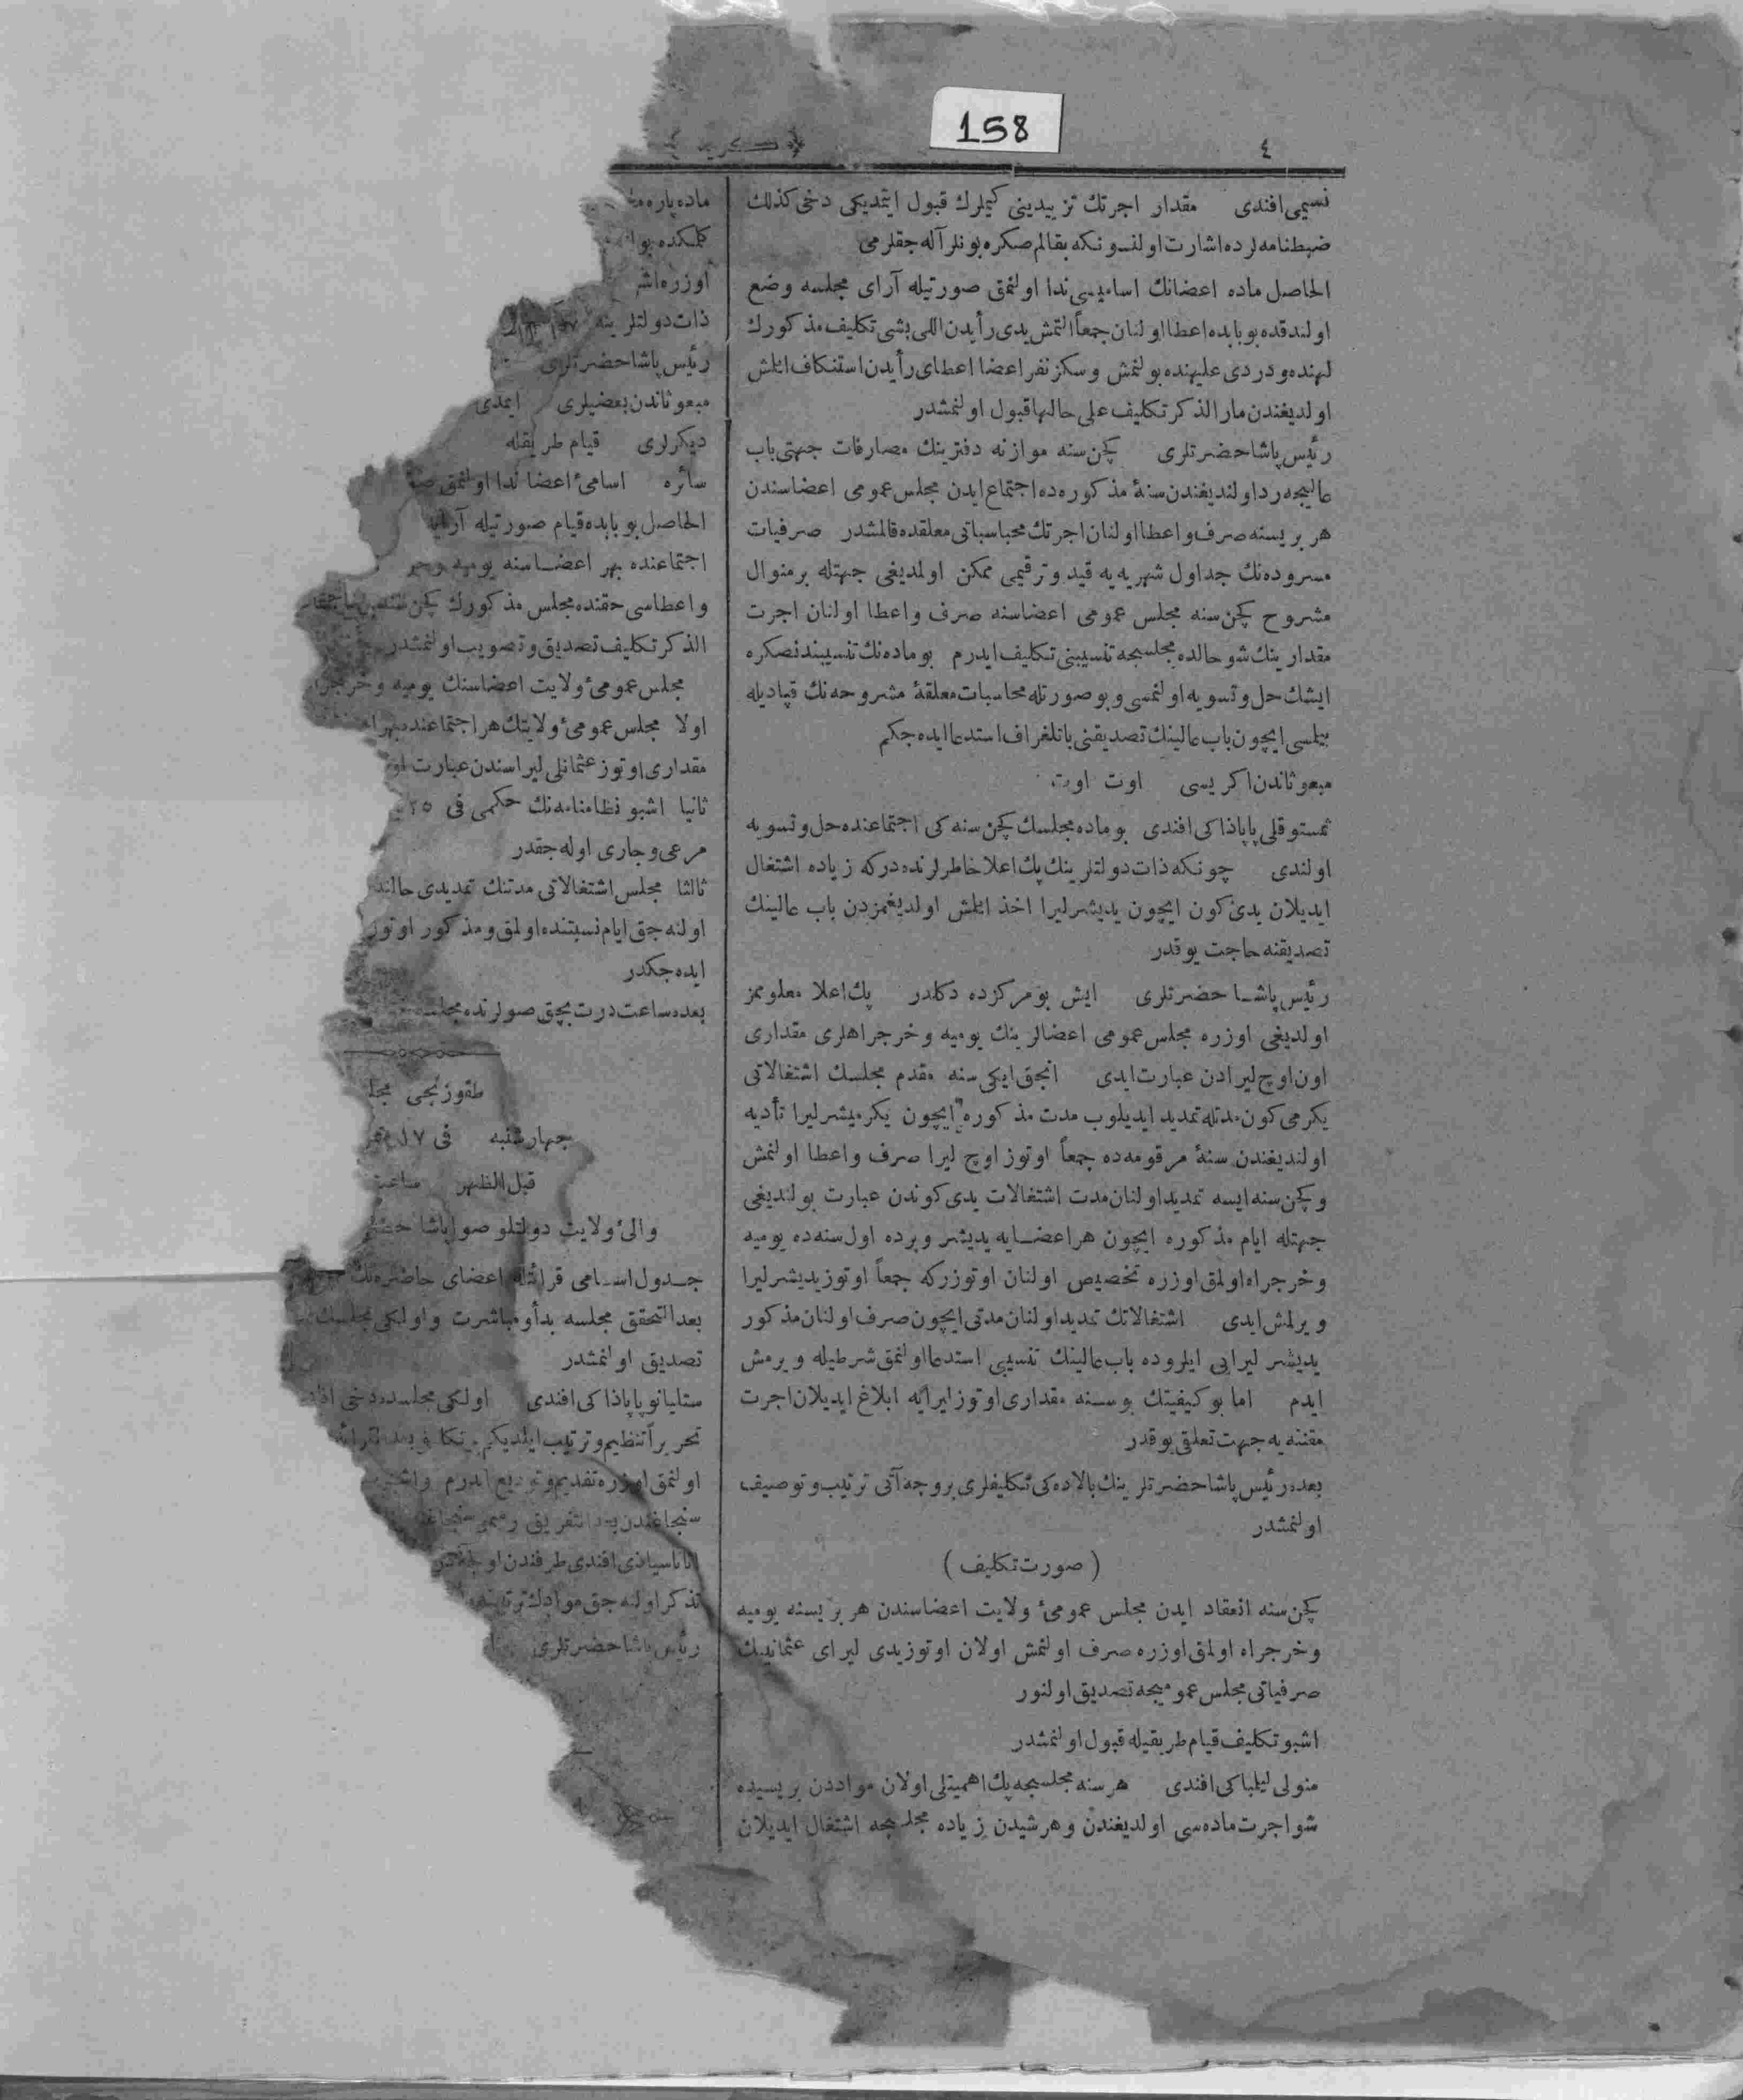 158
٤
كريد
نسیمی افندی مقدار اجرتك تزییدینی كیملرك قبول ایتدیكی دخی كذلك
ضبطنامه لرده اشارت اولنسونكه بقالم صكره بونلر آله جقلرمی
الحاصل ماده اعضانك اسامیسی ندا اولنمق صورتیله آرای مجلسه وضع
اولندقده بو بابده اعطا اولنان جمعاً التمش یدی رأیدن اللی بشی تكلیف مذكورك
لهنده ودردی علیهنده بولنمش وسكز نفر اعضا اعطای رأیدن استنكاف ایلمش
اولدیغندن مار الذكر تكلیف علی حالها قبول اولنمشدر
رئیس پاشا حضرتلری كچن سنه موازنه دفترینك مصارفات جهتی باب
عالیجه رد اولندیغندن سنۀ مذكوره ده اجتماع ایدن مجلس عمومی اعضاسندن
هر بریسنه صرف واعطا اولنان اجرتك محاسباتی معلقده قالمشدر صرفیات
مسروده نك جداول شهریه یه قید وترقیمی ممكن اولمدیغی جهتله بر منوال
مشروح كچن سنه مجلس عمومی اعضاسنه صرف واعطا اولنان اجرت
مقدارینك شو حالده مجلسجه تنسیبنی تكلیف ایدرم بو ماده نك تنسیبندنصكره
ایشك حل وتسویه اولنمسی وبو صورتله محاسبات معلقۀ مشروحه نك قپادیله
بیلمسی ایچون باب عالینك تصدیقنی باتلغراف استدعا ایده جكم
مبعوثاندن اكریسی اوت اوت
پاپاذاكی افندی بو ماده مجلسك كچن سنه كی اجتماعنده حل وتسویه
اولندی چونكه ذات دولتلرینك پك اعلا خاطرلرنده دركه زیاده اشتغال
ایدیلان یدی كون ایچون یدیشر لیرا اخذ ایلمش اولدیغمزدن باب عالینك
تصدیقنه حاجت یوقدر
رئیس پاشا حضرتلری ایش بو مركزده دكلدر پك اعلا معلومز
اولدیغی اوزره مجلس عمومی اعضالرینك یومیه وخرجراهلری مقداری
اون اوچ لیرادن عبارت ایدی انجق ایكی سنه مقدم مجلسك اشتغالاتی
یكرمی كون مدتله تمدید ایدیلوب مدت مذكوره ایچون یكرمیشر لیرا تأدیه
اولندیغندن سنۀ مرقومه ده جمعاً اوتوز اوچ لیرا صرف واعطا اولنمش
وكچن سنه ایسه تمدید اولنان مدت اشتغالات یدی كوندن عبارت بولندیغی
جهتله ایام مذكوره ایچون هر اعضایه یدیشر وبرده اول سنه ده یومیه
وخرجراه اولمق اوزره تخصیص اولنان اوتوزركه جمعاً اوتوز یدیشر لیرا
ویرلمش ایدی اشتغالاتك تمدید اولنان مدتی ایچون صرف اولنان مذكور
یدیشر لیرایی ایلروده باب عالینك تنسیبی استدعا اولنمق شرطیله ویرمش
ایدم اما بو كیفیتك بو سنه مقداری اوتوز لیرایه ابلاغ ایدیلان اجرت
مقننه یه جهت تعلقی یوقدر
بعده رئیس پاشا حضرتلرینك بالاده كی تكلیفلری بر وجه آتی ترتیب وتوصیف
اولنمشدر
( صورت تكلیف )
كچن سنه انعقاد ایدن مجلس عمومئ ولایت اعضاسندن هر بریسنه یومیه
وخرجراه اولمق اوزره صرف اولنمش اولان اوتوز یدی لیرای عثمانینك
صرفیاتی مجلس عمومیجه تصدیق اولنور
اشبو تكلیف قیام طریقیله قبول اولنمشدر
منولی افندی هر سنه مجلسجه پك اهمیتلی اولان مواددن بریسیده
شو اجرت ماده سی اولدیغندن وهر شیدن زیاده مجلسجه اشتغال ایدیلان
ماده پاره
كلكده
اوزره
ذات دولتلرینه
رئیس پاشا حضرتلری
مبعوثاندن بعضیلری ایمدی
دیكرلری قیام طریقله
سائره اسامئ اعضا ندا اولنمق
الحاصل بو بابده قیام صورتیله
اجتماعنده بهر اعضاسنه یومیه
واعطاسی حقنده مجلس مذكورك كچن
الذكر تكلیف تصدیق وتصویب اولنمشدر
مجلس عمومئ ولایت اعضاسنك یومیه
اولا مجلس عمومئ ولایتك هر اجتماعنده
مقداری اوتوز عثمانلی لیراسندن عبارت
ثانیا اشبو نظامنامه نك حكمی فی ٢٥
مرعی وجاری اوله جقدر
ثالثا مجلس اشتغالاتی مدتنك تمدیدی
اولنه جق ایام نسبتنده اولمق ومذكور اوتوز
ایده جكدر
بعده ساعت درت بچق صولرنده
طقوزنجی
چهارشنبه فی ١٧
قبل الظهر ساعت
والئ ولایت دولتلو صوا پاشا
جدول اسامی قرائتله اعضای حاضره نك
بعد التحقق مجلسه بدأ ومباشرت واولكی مجلسك
تصدیق اولنمشدر
ستلیانو پاپاذاكی افندی اولكی مجلسده دخی
تحریراً تنظیم وترتیب ایلدیكم
اولنمق اوزره تقدیم وتودیع ایدرم
سنجاغندن بعد التفریق
افندی طرفندن
تذكر اولنه جق موادك
رئیس پاشا حضرتلری